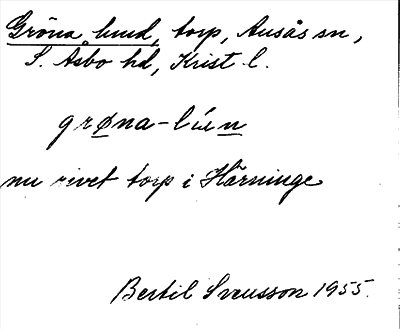 Gröna lund, torp, Ausås sn,
S. Åsbo hd, Krist. l.
grøna-lún
nu rivet torp i Härninge
Bertil Svensson 1955.